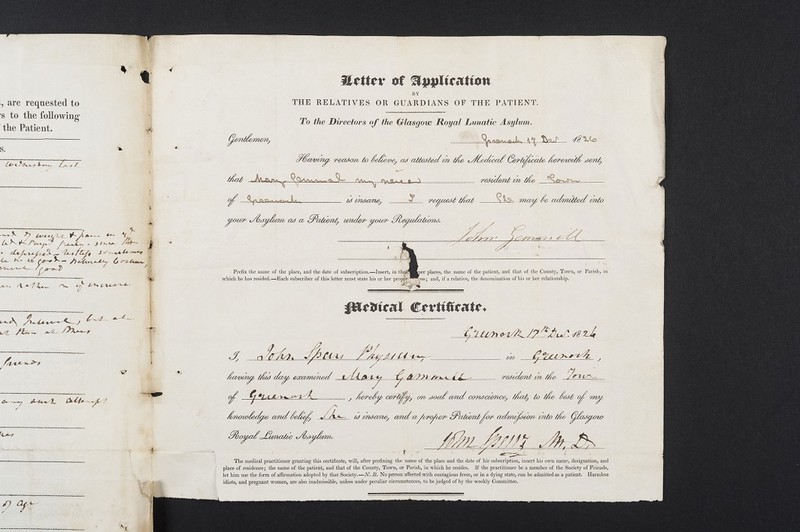 , are requested to
s to the following
the Patient.
s.
Wednesday last
good
friends
any such attempt
of age
Letter of Application
BY
THE RELATIVES OR GUARDIANS OF THE PATIENT.
To the Directors of the Glasgow Royal Lunatic Asylum.
Gentlemen,
Greenock 17 Decr 1826
Having reason to believe, as attested in the Medical Certificate herewith sent,
that Mary Gemmell my niece resident in the Town
of Greenock is insane, I request that She may be admitted into
your Asylum as a Patient, under your Regulations.
John Gemmell
Prefix the name of the place, and the date of subscription.—Insert, in their proper places, the name of the patient, and that of the County, Town, or Parish, in
which he has resided.—Each subscriber of this letter must state his or her proper; and, if a relative, the denomination of his or her relationship.
Medical Certificate.
Greenock 17th Decr 1826
I, John Speirs Physician in Greenock,
having this day examined Mary Gammell resident in the Town
of Greenock, hereby certify, on soul and conscience, that, to the best of my
knowledge and belief, She is insane, and a proper Patient for admission into the Glasgow
Royal Lunatic Asylum.
John Speirs M.D.
The medical practitioner granting this certificate, will, after prefixing the name of the place and the date of his subscription, insert his own name, designation, and
place of residence; the name of the patient, and that of the County, Town, or Parish, in which he resides. If the practitioner be a member of the Society of Friends,
let him use the form of affirmation adopted by that Society.—N. B. No person affected with contagious fever, or in a dying state, can be admitted as a patient. Harmless
idiots, and pregnant women, are also inadmissible, unless under peculiar circumstances, to be judged of by the weekly Committee.